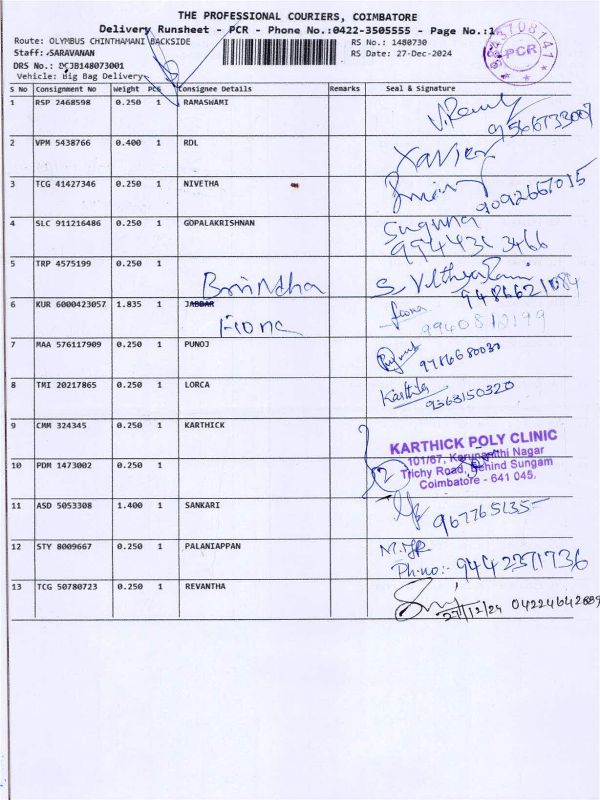 THE PROFESSIONAL COURIERS, COIMBATORE
Delivery Runsheet - PCR - Phone No.:0422-3505555 - Page No.:1
Route: OLYMBUS CHINTHAMANI BACKSIDE RS No.: 1480730
Staff: SARAVANAN RS Date: 27-Dec-2024
DRS No.: DCJB148073001
Vehicle: Big Bag Delivery
PCR
S No Consignment No Weight PCS Consignee Details Remarks Seal & Signature
1 RSP 2468598 0.250 1 RAMASWAMI
9566733007
2 VPM 5438766 0.400 1 RDL Xavier
3 TCG 41427346 0.250 1 NIVETHA
9092667015
4 SLC 911216486 0.250 1 GOPALAKRISHNAN Suguna
5 TRP 4575199 0.250 1
Brindha
6 KUR 6000423057 1.835 1 JABBAR
Fiona 9940812199
7 MAA 576117909 0.250 1 PUNOJ
9786680030
8 TMI 20217865 0.250 1 LORCA Karthika
9363150320
9 CMM 324345 0.250 1 KARTHICK
KARTHICK POLY CLINIC
101/67, Karunanithi Nagar
Trichy Road, Behind Sungam
Coimbatore - 641 045.
10 PDM 1473002 0.250 1 2
11 ASD 5053308 1.400 1 SANKARI
12 STY 8009667 0.250 1 PALANIAPPAN
Ph.no:- 9442371736
13 TCG 50780723 0.250 1 REVANTHA
27/12/24